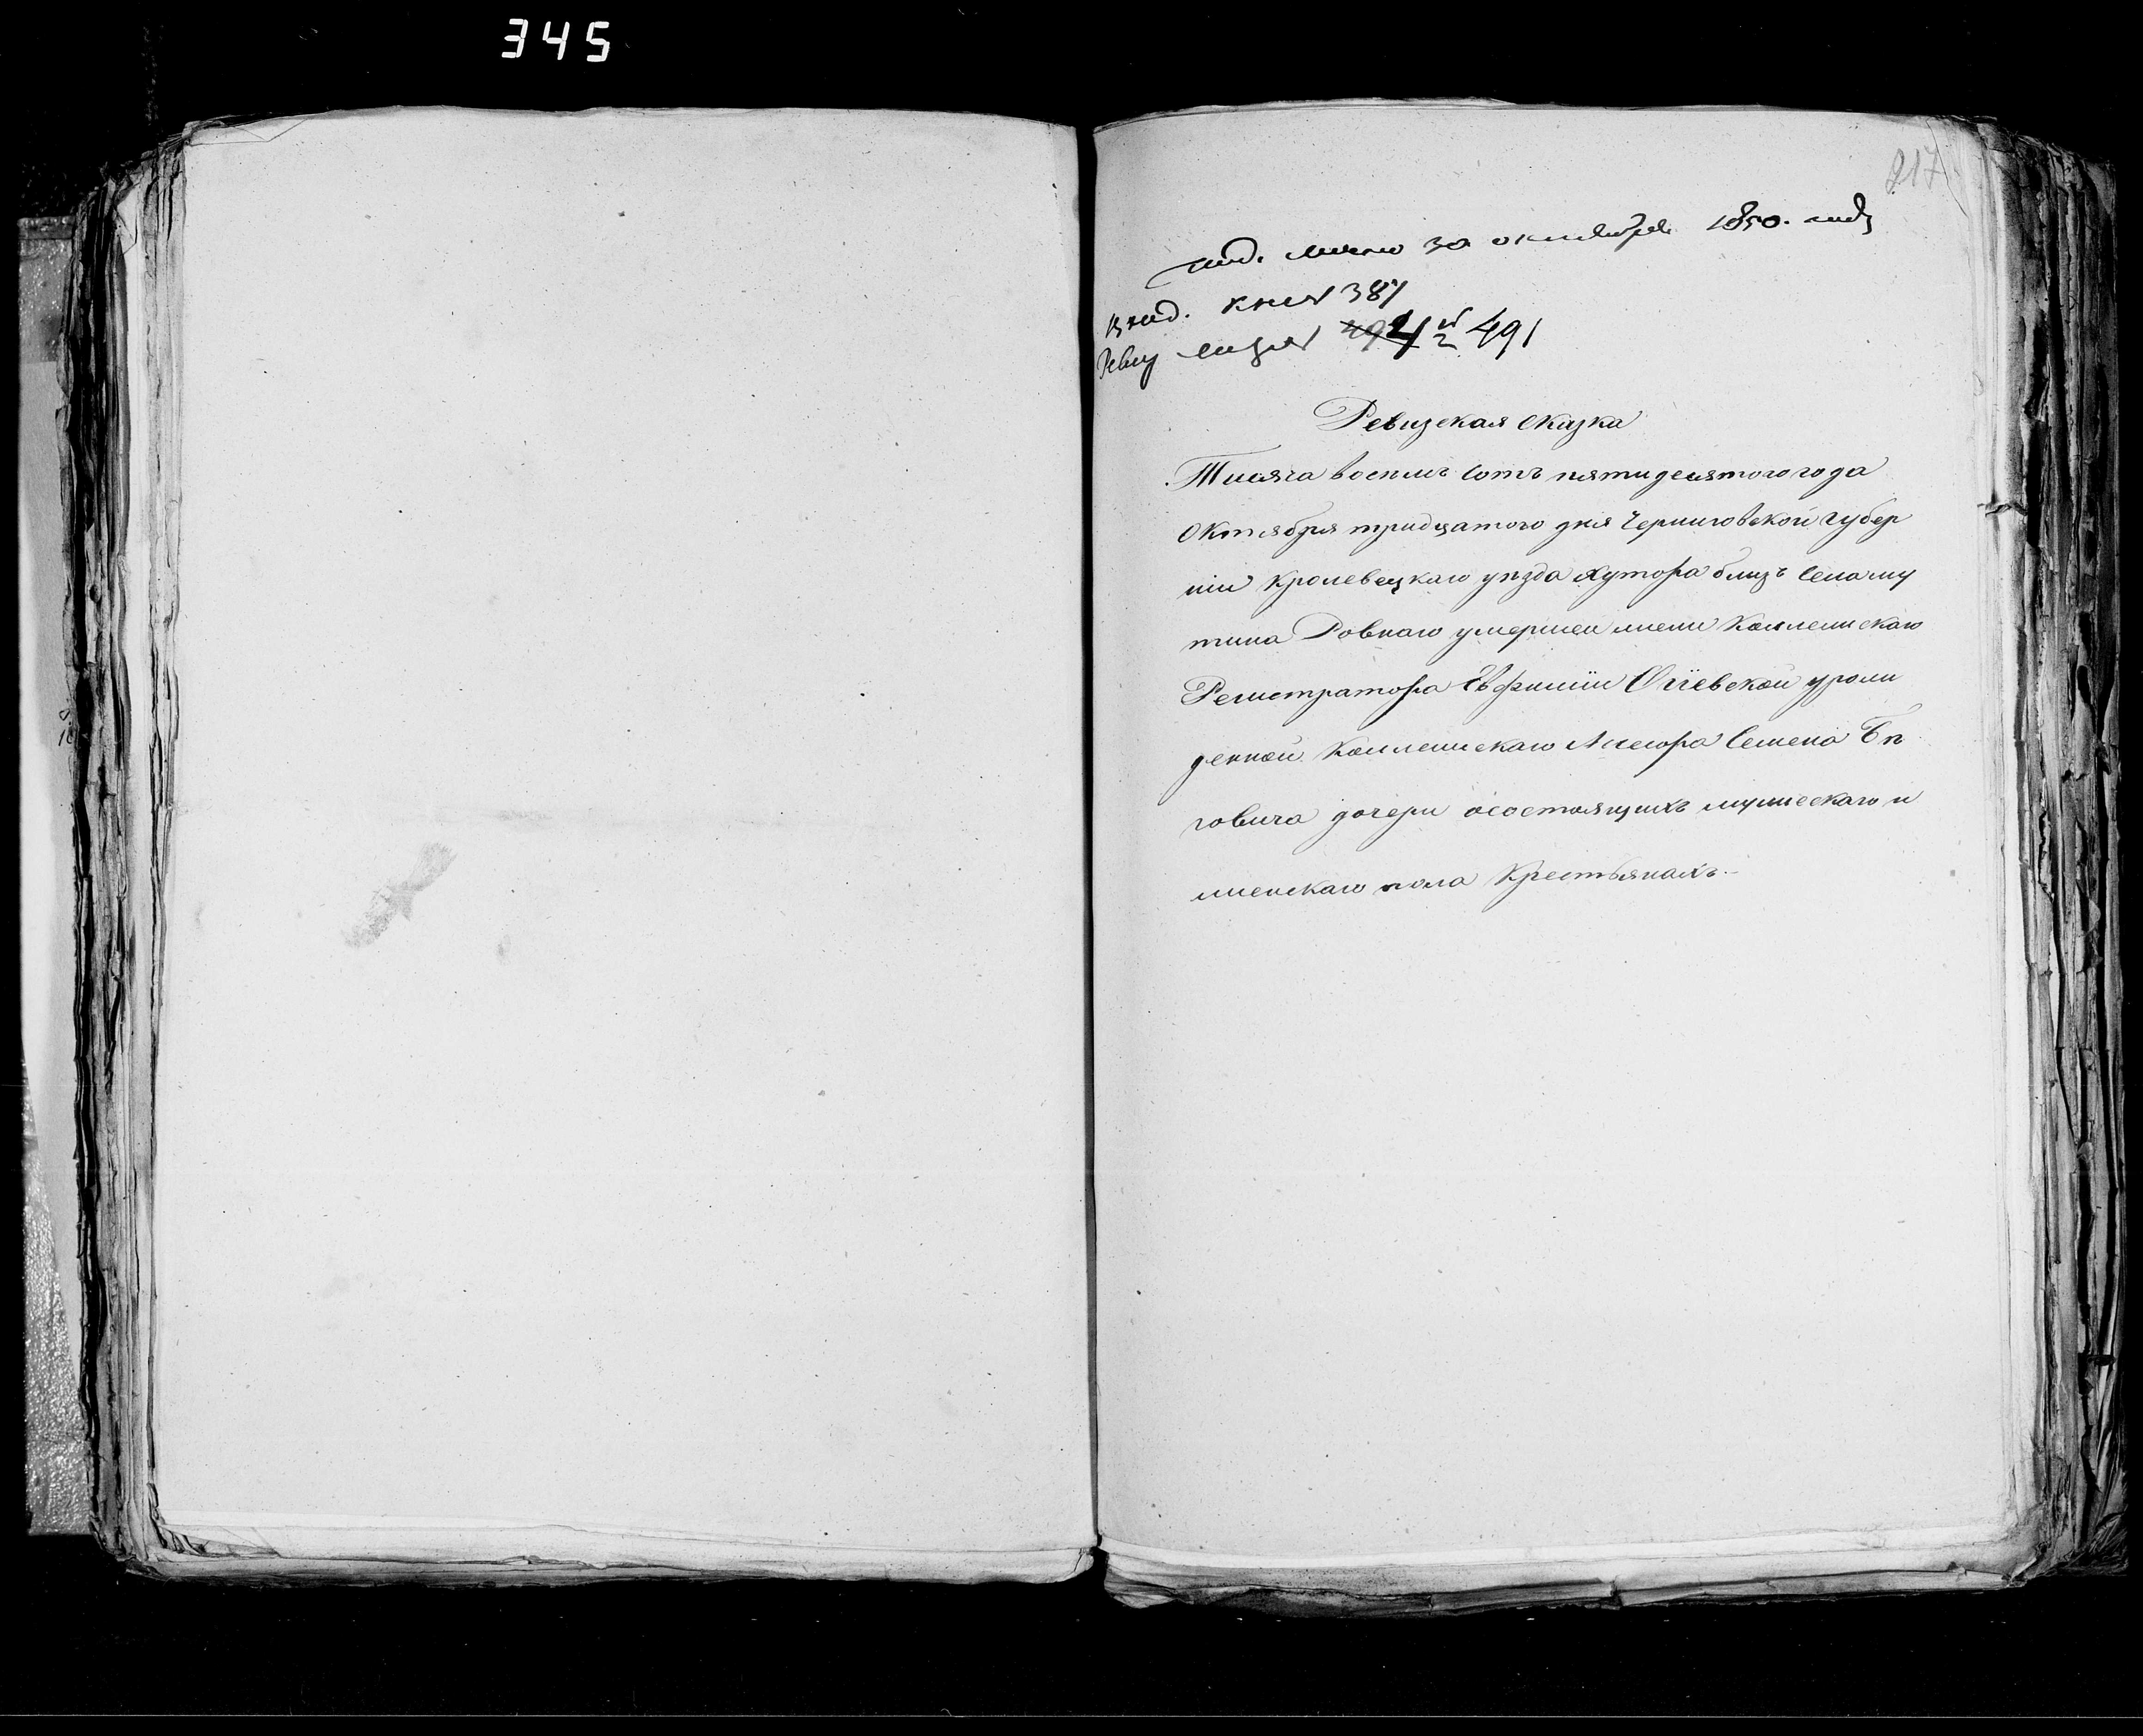 345
217
под. лично 30 октября 1850. года
вход. книг 387
Ревиз 491
Ревизская сказка
Тысяча восемь сотъ пятидесятого года
Октября тридцатого дня Черниговской губер
ніи Кролевецкаго уѣзда Хутора близъ Села му
тина Ровнаго умершей жены Коллежскаго
Регистратора Евфиміи Огіевской урож
денной Коллежскаго Асесора Семена Бѣ
говича дочери осостоящихъ мужескаго и
женскаго пола Крестьянахъ.